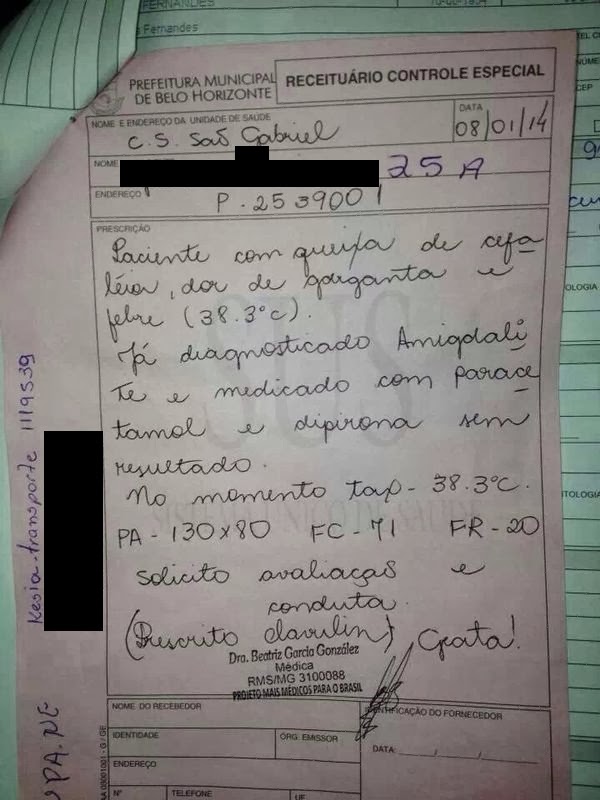 FERNANDES
Fernandes
PREFEITURA MUNICIPAL
DE BELO HORIZONTE
RECEITUÁRIO CONTROLE ESPECIAL
NOME E ENDEREÇO DA UNIDADE DE SAÚDE
C.S. Saõ Gabriel
DATA
08/01/14
NOME
25 A
ENDEREÇO
P-2539001
PRESCRIÇÃO
Paciente com queixa de cefa
léia, dor de garganta e
febre (38.3°c).
Já diagnosticado Amigdali
te e medicado com parace
tamol e dipirona sem
resultado.
No momento tax - 38.3°C.
PA - 130x80 FC - 71 FR - 20
Solicito avaliaçaõ e
conduta.
(Prescrito clavulin) Grata!
Dra. Beatriz Garcia González
Médica
RMS/MG 3100088
PROJETO MAIS MÉDICOS PARA O BRASIL
NOME DO RECEBEDOR
IDENTIDADE
ÓRG. EMISSOR
ENDEREÇO
Nº
TELEFONE
UF
IDENTIFICAÇÃO DO FORNECEDOR
DATA: ____/____/____
Kesia-transporte 1119539
UPA.NE
SUS
SISTEMA ÚNICO DE SAÚDE
CEP